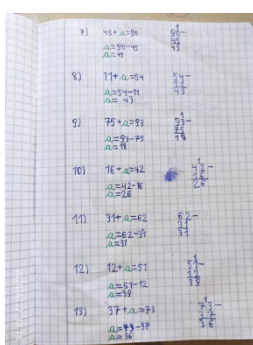 7) 45+a=90
a=90-45
a=45
90-
45
45
8) 11+a=54
a=54-11
a= 43
54-
11
43
9) 75+a=93
a=93-75
a=18
93-
75
18
10) 16+a=42
a=42-16
a=26
42-
16
26
11) 31+a=62
a=62-31
a=31
62-
31
31
12) 12+a=51
a=51-12
a=39
51-
12
39
13) 37+a=73
a=73-37
a=36
73-
37
36